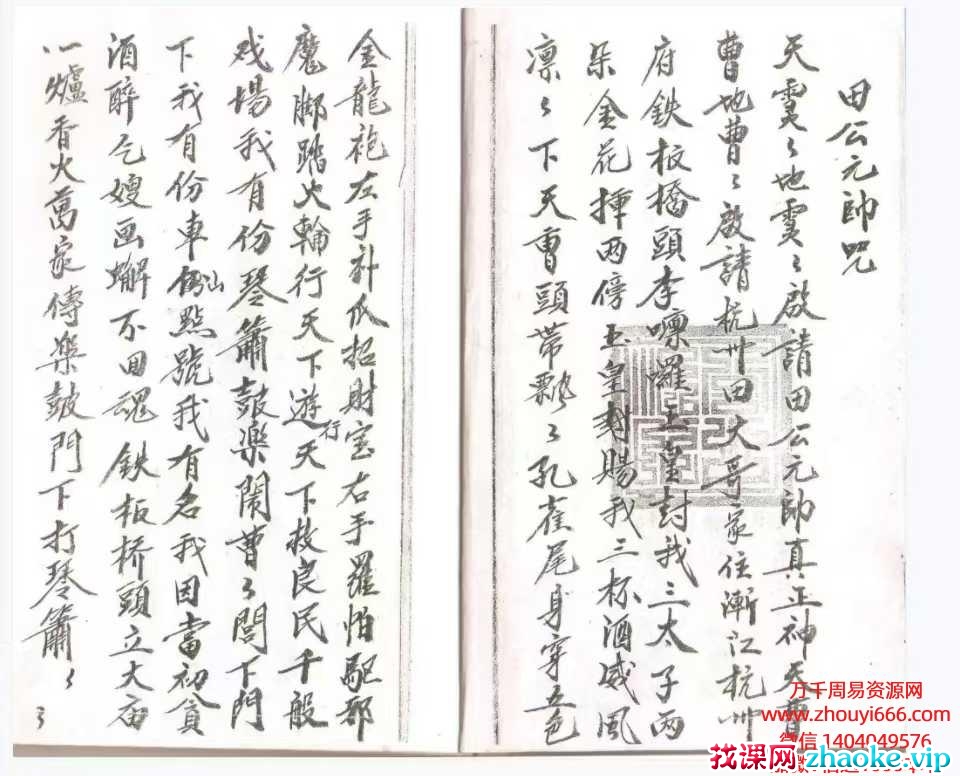 田公元帥咒
天靈〻地靈〻啟請田公元帥真正神天曹
曹地曹〻啟請杭州田大哥家住淅江杭州
府鉄板橋頭李嚟囉玉皇封我三太子兩
朵金花揷兩傍玉皇封賜我三杯酒威風
凛〻下天曹頭帶飄〻孔雀尾身穿五色
金龍袍左手針瓜招財宝右手羅怕駆邪
魔脚踏火輪行天下遊行天下救良民千般
戏場我有份琴簫鼓樂鬧曹〻閭下門
下我有份車山點號我有名我因當初貪
酒醉乞嫂画蠏不回魂鉄板桥頭立大庙
一爐香火萬家傳樂鼓門下打琴簫〻
3
万千周易资源网
www.zhouyi666.com
微信 1404049576
找课网zhaoke.vip